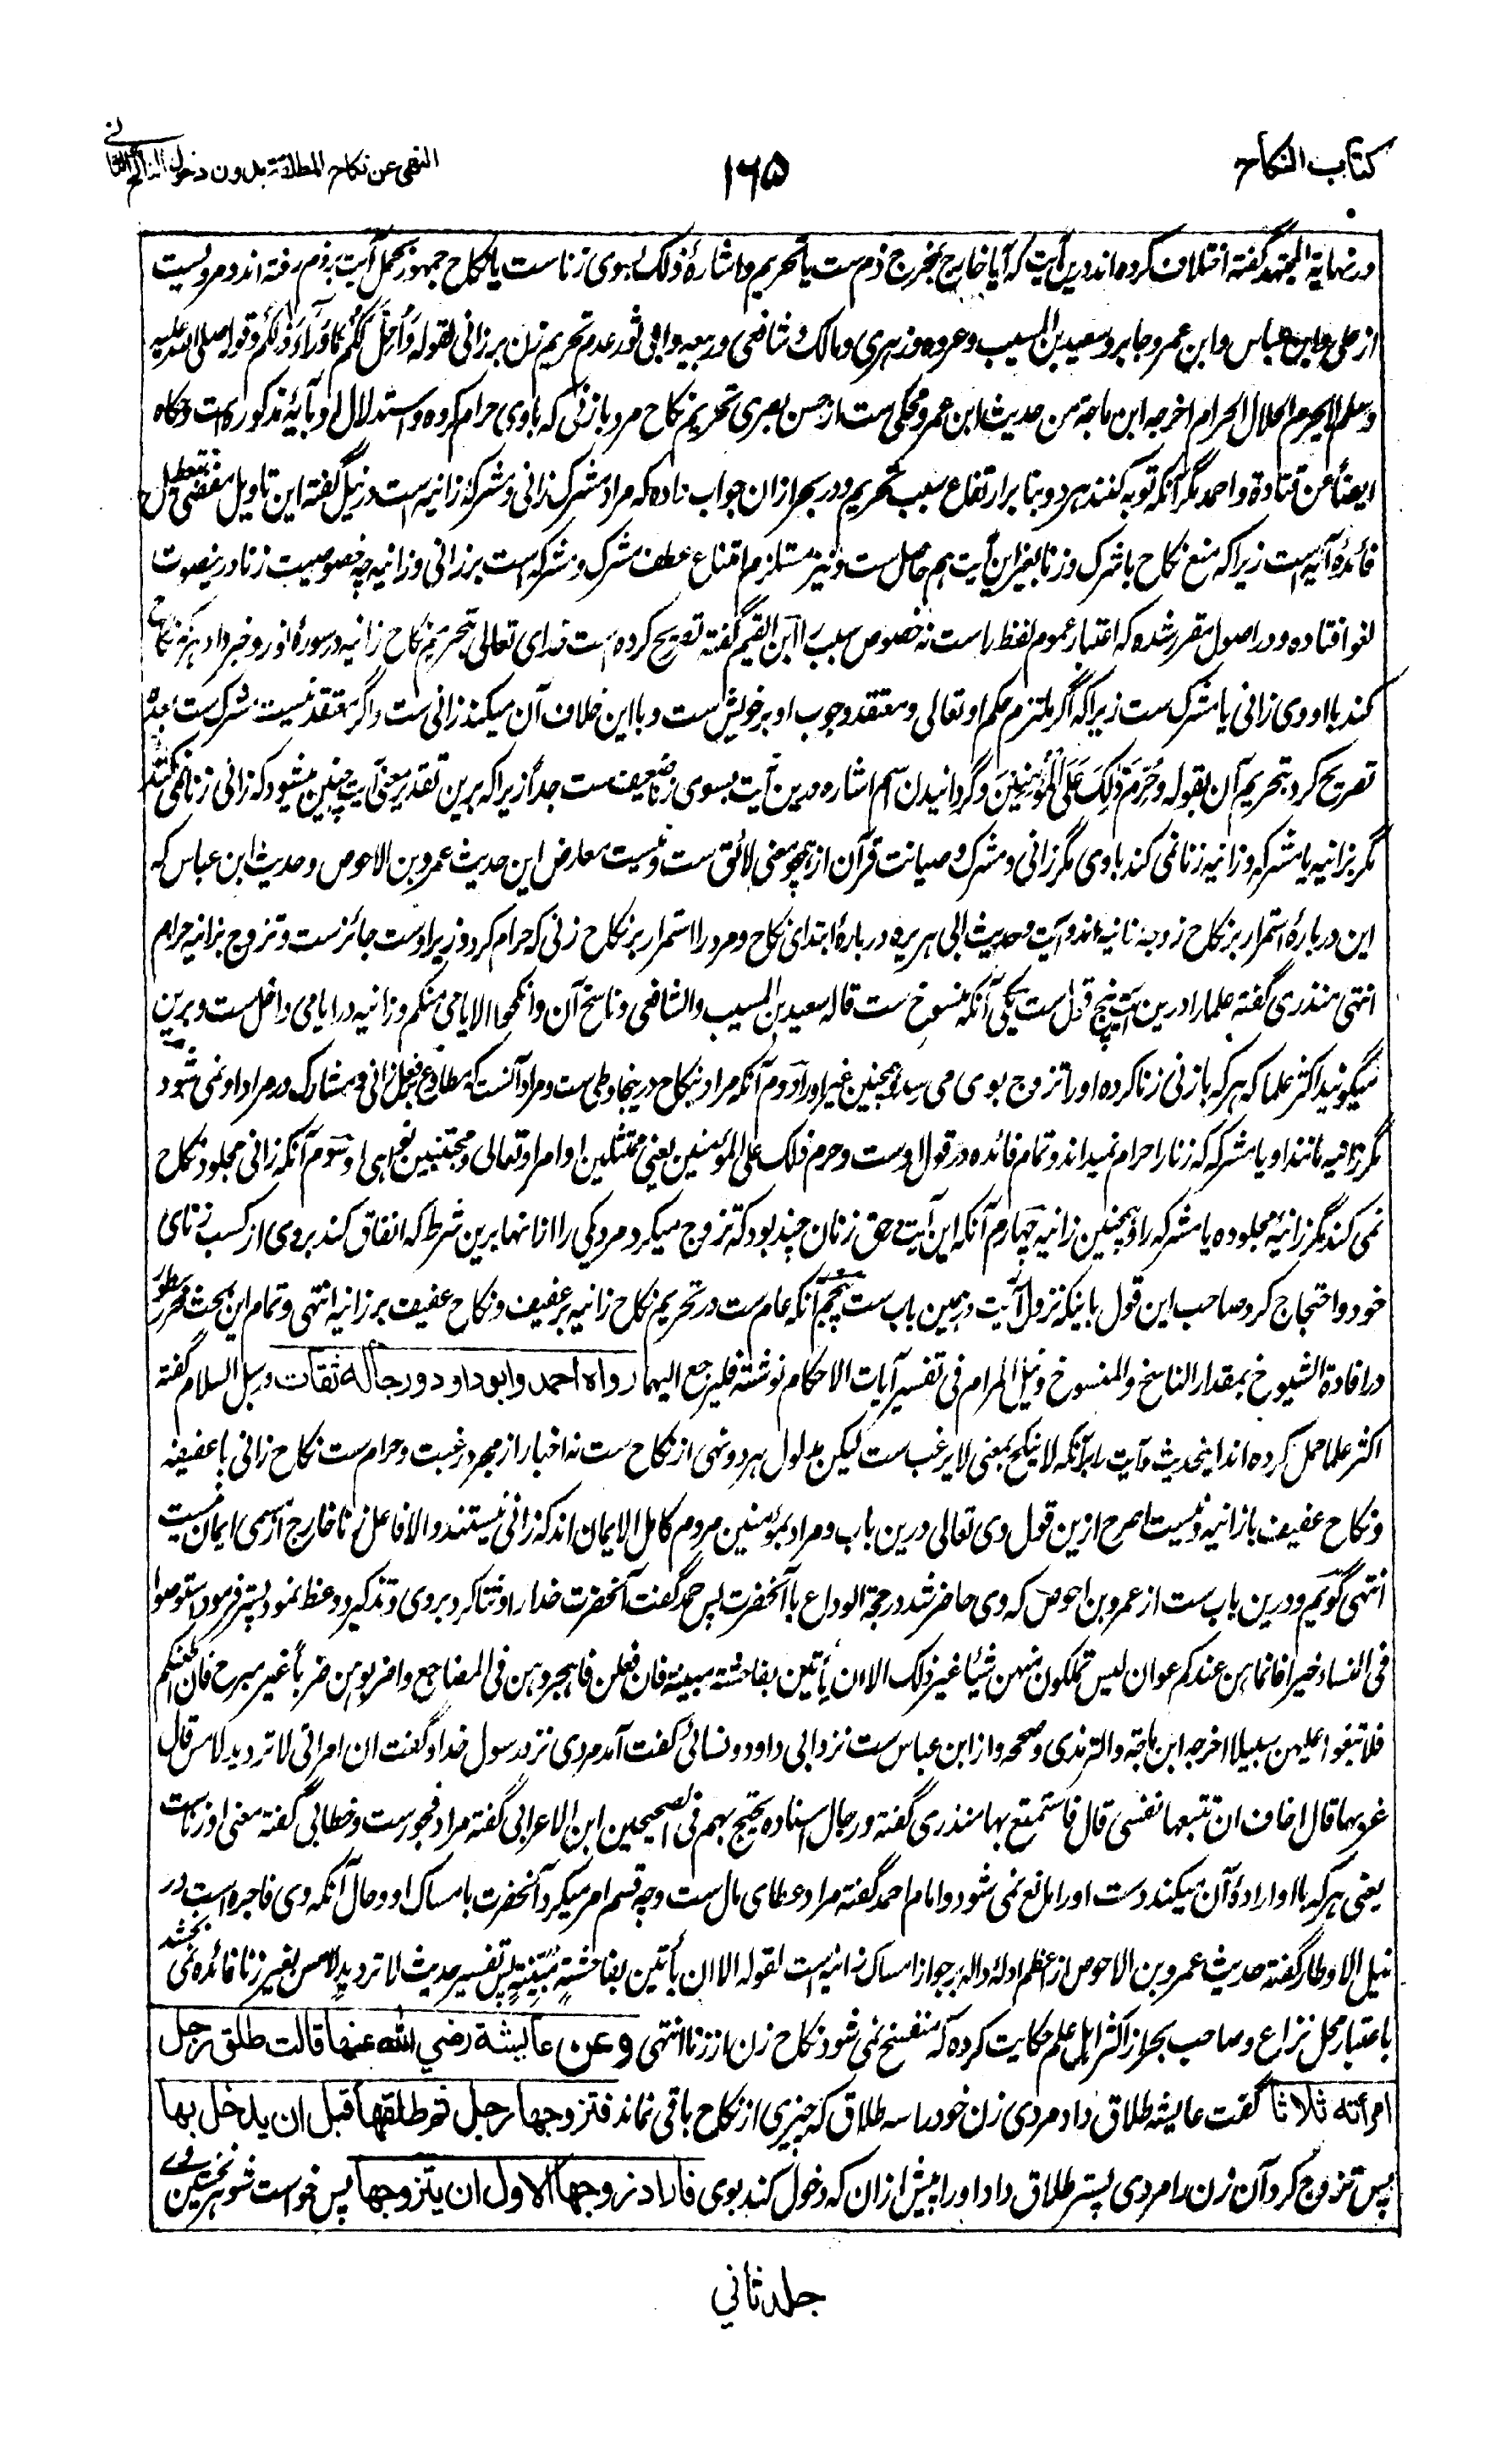 كتاب النكاح
١٦٥
النهي عن نكاح المطلقة بدون دخول الناكح الثاني
در نهاية المجتهد گفته اختلاف کرده اند درین آیت که آیا خارج بمخرج ذم ست یا تحریم و اشارهٔ ذلک بسوی زناست یا نکاح جمهور بحمل آیت بر ذم رفته اند و مرویست
از علی و ابن عباس و ابن عمر و جابر و سعید بن المسیب و عروه و زهری و مالک و شافعی و ربیعه و ابی ثور عدم تحریم زن بر زانی لقوله وَأُحِلَّ لَكُمْ مَا وَرَاءَ ذَلِكُمْ و قوله صلی الله علیه
وسلم لا یحرم الحلال الحرام اخرجه ابن ماجة من حدیث ابن عمر و محکی ست از حسن بصری تحریم نکاح مرد با زنی که با وی حرام کرده و استدلال او بآیهٔ مذکوره است و حکاه
ایضاً عن قتادة و احمد مگر آنکه توبه کنند هر دو بنا بر ارتفاع سبب تحریم و در بحر ازان جواب داده که مراد مشرک زانی و مشرکهٔ زانیه است در نیل گفته این تاویل مفضی تعطیل
فائدهٔ آیه است زیرا که منع نکاح با شرک و زنا بغیر این آیت هم حاصل ست و نیز مستلزم امتناع عطف مشرک و مشرکه است بر زانی و زانیه چه خصوصیت زنا درینصورت
لغو افتاده و در اصول مقرر شده که اعتبار عموم لفظ راست نه خصوص سبب را ابن القیم گفته تصریح کرده است خدای تعالی بتحریم نکاح زانیه در سورهٔ نور و خبر داد هر که نکاح
کند با او وی زانی یا مشرک ست زیرا که اگر ملتزم حکم او تعالی و معتقد وجوب او بر خویش ست و با این خلاف آن میکند زانی ست و اگر معتقد نیست مشرک ست بعده
تصریح کرد بتحریم آن بقوله وَحُرِّمَ ذَلِكَ عَلَى الْمُؤْمِنِينَ و گردانیدن اسم اشاره درین آیت بسوی زنا ضعیف ست جداً زیرا که برین تقدیر معنی آیت چنین میشود که زانی زنا نمی کند
مگر بزانیه یا مشرکه و زانیه زنا نمی کند با وی مگر زانی و مشرک و صیانت قرآن از همچو معنی لائق ست و نیست معارض این حدیث عمرو بن الاحوص و حدیث ابن عباس که
این دربارهٔ استمرار بر نکاح زوجهٔ زانیه اند و آیت و حدیث ابی هریره دربارهٔ ابتدای نکاح و مرد را استمرار بر نکاح زنی که حرام کرد و زیر اوست جائز ست و تزوج بزانیه حرام
انتهی منذری گفته علما را درین آیت پنج قول ست یکی آنکه منسوخ ست قاله سعید بن المسیب و الشافعی و ناسخ آن وانکحوا الایامی منکم و زانیه در ایامی داخل ست و برین
میگویند اکثر علما که هر که با زنی زنا کرده او را تزوج بوی می رسد و همچنین غیر او را دوم آنکه مراد بنکاح درینجا وطی ست و مراد آنست که مطاوع بفعل زانی و مشارک در مراد او نمی شود
مگر زانیه مانند او یا مشرکه که زنا را حرام نمیداند و تمام فائده در قول اوست وحرم ذلک علی المؤمنین یعنی ممتثلین اوامر او تعالی و مجتنبین نواهی او سوم آنکه زانی مجلود نکاح
نمی کند مگر زانیهٔ مجلوده یا مشرکه را و همچنین زانیه چهارم آنکه این آیت در حق زنان چند بود که تزوج میکرد مرد یکی را از انها برین شرط که انفاق کند بر وی از کسب زنای
خود و احتجاج کرد صاحب این قول باینکه نزول آیت در همین باب ست پنجم آنکه عام ست در تحریم نکاح زانیه بر عفیف و نکاح عفیف بر زانیه انتهی و تمام این بحث محرر سطور
در افادة الشیوخ بمقدار الناسخ والمنسوخ و نیل المرام فی تفسیر آیات الاحکام نوشته فلیرجع الیهما رواه احمد وابو داود ورجاله ثقات در سبل السلام گفته
اکثر علما حمل کرده اند اینحدیث و آیت را بر آنکه لا ینکح بمعنی لا یرغب ست لیکن مدلول هر دو نهی از نکاح ست نه اخبار از مجرد رغبت و حرام ست نکاح زانی با عفیفه
و نکاح عفیف با زانیه و نیست اصرح ازین قول وی تعالی درین باب و مراد بمؤمنین مردم کامل الایمان اند که زانی نیستند والا فاعل زنا خارج از مسمی ایمان نیست
انتهی گویم و درین باب ست از عمرو بن احوص که وی حاضر شد در حجة الوداع با آنحضرت پس حمد گفت آنحضرت خدا را و ثنا کرد بر وی و تذکیر و وعظ نمود پستر فرمود استوصوا
فی النساء خیرا فانما هن عندکم عوان لیس تملکون منهن شیئا غیر ذلک الا ان یأتین بفاحشة مبینة فان فعلن فاهجروهن فی المضاجع واضربوهن ضرباً غیر مبرح فان اطعنکم
فلا تبغوا علیهن سبیلا اخرجه ابن ماجة والترمذی وصححه و از ابن عباس ست نزد ابی داود و نسائی گفت آمد مردی نزد رسول خدا و گفت ان امرأتی لا ترد ید لامس قال
غربها قال اخاف ان تتبعها نفسی قال فاستمتع بها منذری گفته و رجال اسناده یحتج بهم فی الصحیحین ابن الاعرابی گفته مراد فجور ست و خطابی گفته معنی او زناست
یعنی هر که با او ارادهٔ آن میکند دست او را مانع نمی شود و امام احمد گفته مراد عطای مال ست و چه قسم امر میکرد آنحضرت بامساک او و حال آنکه وی فاجره است در
نیل الاوطار گفته حدیث عمرو بن الاحوص از اعظم ادلهٔ داله بر جواز امساک زانیه است لقوله الا ان یأتین بفاحشةٍ مبینةٍ پس تفسیر حدیث لا ترد ید لامس بغیر زنا فائده نمی بخشد
باعتبار محل نزاع و صاحب بحر از اکثر اهل علم حکایت کرده که منفسخ نمی شود نکاح زن از زنا انتهی وعن عايشة رضي الله عنها قالت طلق رجل
امرأته ثلاثا گفت عایشه طلاق داد مردی زن خود را سه طلاق که چیزی از نکاح باقی نماند فتزوجها رجل ثم طلقها قبل ان يدخل بها
پس تزوج کرد آن زن را مردی پستر طلاق داد او را پیش ازان که دخول کند بوی فاراد زوجها الاول ان يتزوجها پس خواست شوهر نخستین وے
جلد ثاني